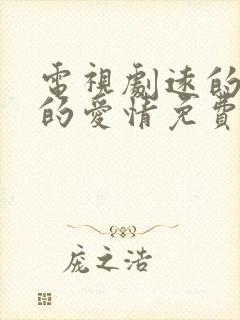 電視劇速的
的愛情免費
庞之浩